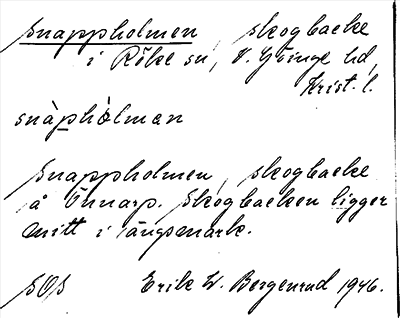 Snappholmen, skogbacke
i Röke sn, V. Göinge hd,
Krist. l.
snàphòlmən
Snappholmen, skogbacke
å Önnarp. Skogbacken ligger
mitt i ängsmark.
SOS Erik W. Bergenrud 1946.